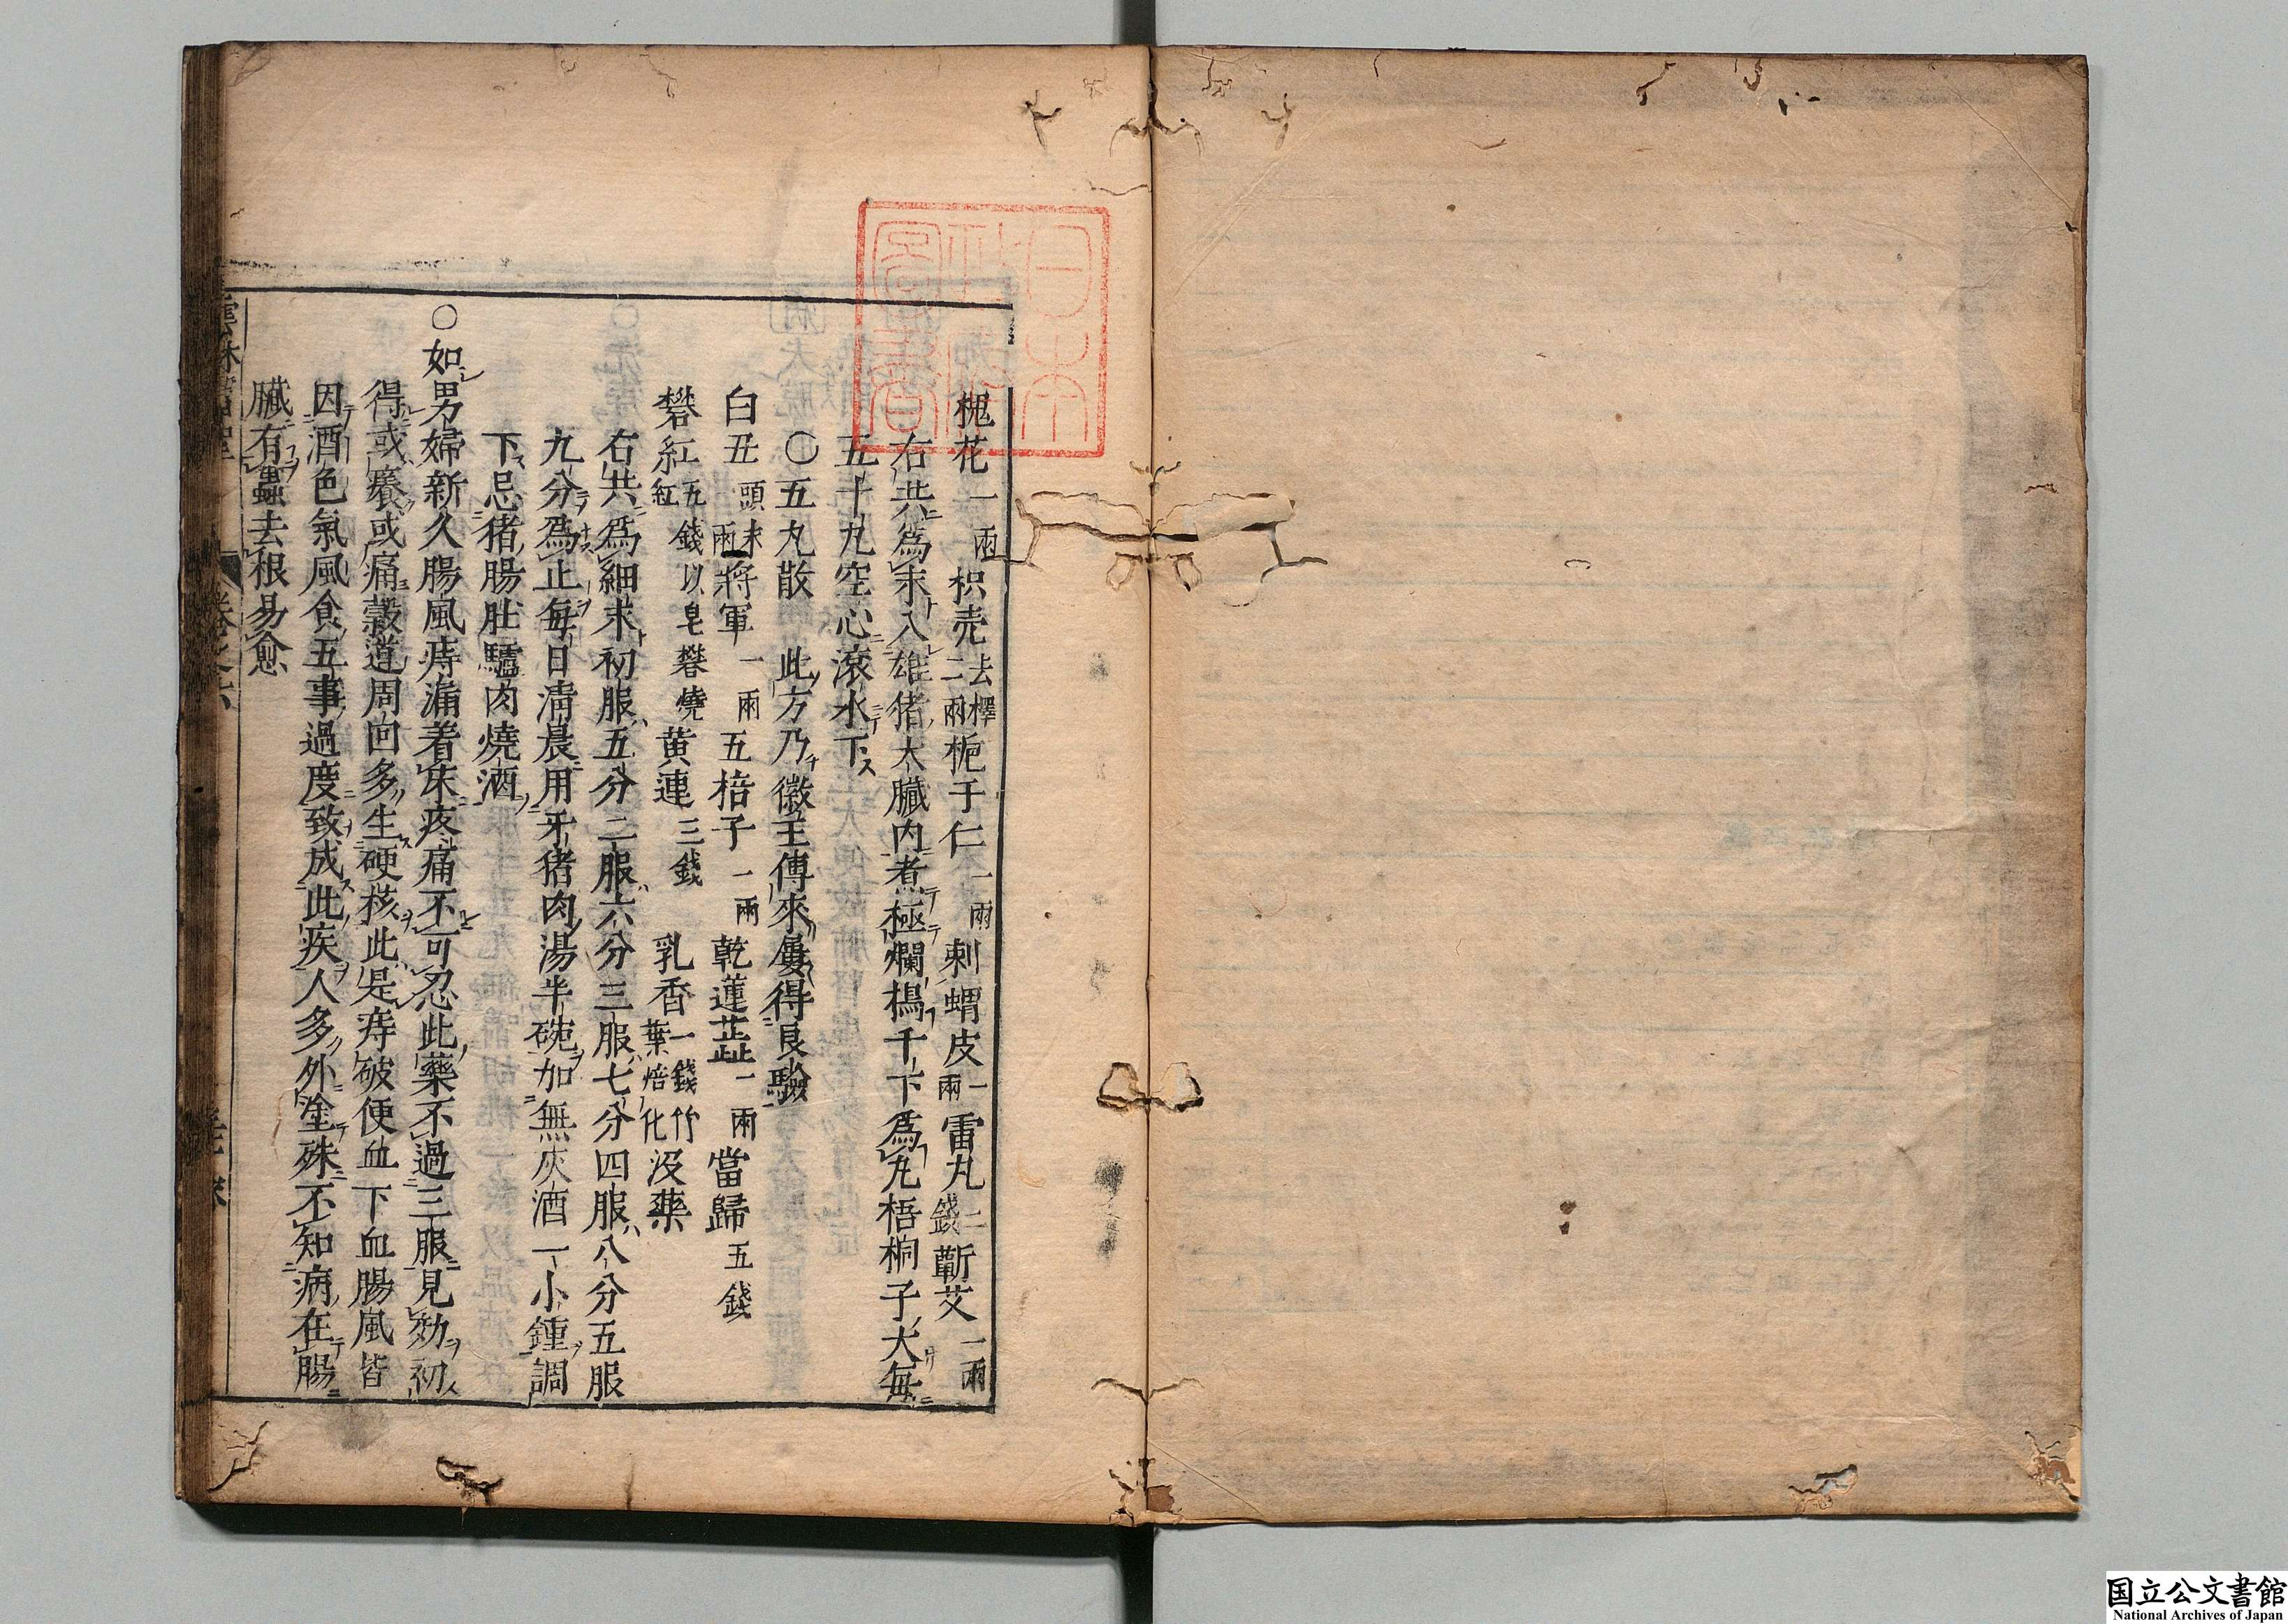 日本
政府
圖書
槐花一兩枳壳去穰二兩梔子仁一兩刺蝟皮一兩雷丸二錢蘄艾一兩
右共為末入雄猪大臟内煮極爛搗千下為丸梧桐子大每
五十丸空心滾水下
○五九散　此方乃徽王傳來屢得良驗
白丑頭末一兩將軍一兩五棓子一兩乾蓮蕋一兩當歸五錢
礬紅五錢以皂礬燒紅黄連三錢乳香一錢竹葉焙化沒藥
右共為細末初服五分二服六分三服七分四服八分五服
九分為止每日清晨用牙猪肉湯半碗加無灰酒一小鍾調
下忌猪腸肚驢肉燒酒
○如男婦新久腸風痔漏着床疼痛不可忍此藥不過三服見効初
得或癢或痛穀道周回多生硬核此是痔破便血下血腸風皆
因酒色氣風食五事過度致成此疾人多外塗殊不知病在腸
臟有蟲去根易愈
卷之六
国立公文書館
National Archives of Japan